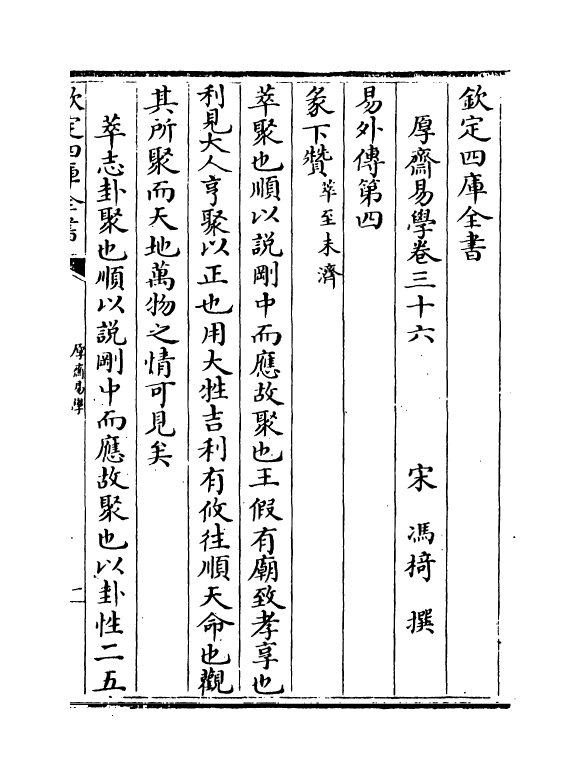 欽定四庫全書
厚齋易學卷三十六　宋　馮椅　撰
易外傳第四
彖下贊萃至未濟
萃聚也順以説剛中而應故聚也王假有廟致孝享也
利見大人亨聚以正也用大牲吉利有攸往順天命也觀
其所聚而天地萬物之情可見矣
萃志卦聚也順以説剛中而應故聚也以卦性二五
欽定四庫全書
厚齋易學